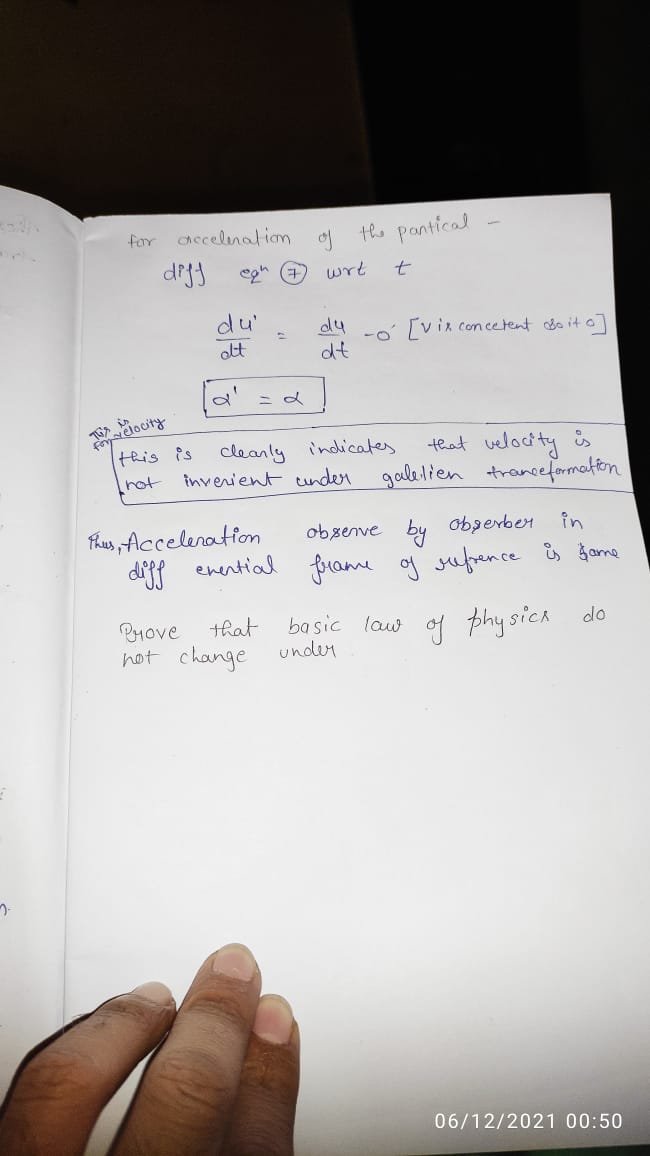 for acceleration of the partical -
diff eqn (7) wrt t
du'/dt = du/dt - 0 [V is concetent so it 0]
a' = a
This is
for velocity
this is clearly indicates that velocity is
not inverient under galelien tranceformation
Thus, Acceleration observe by obserber in
diff enertial frame of refrence is same
Prove that basic law of physics do
not change under
06/12/2021 00:50